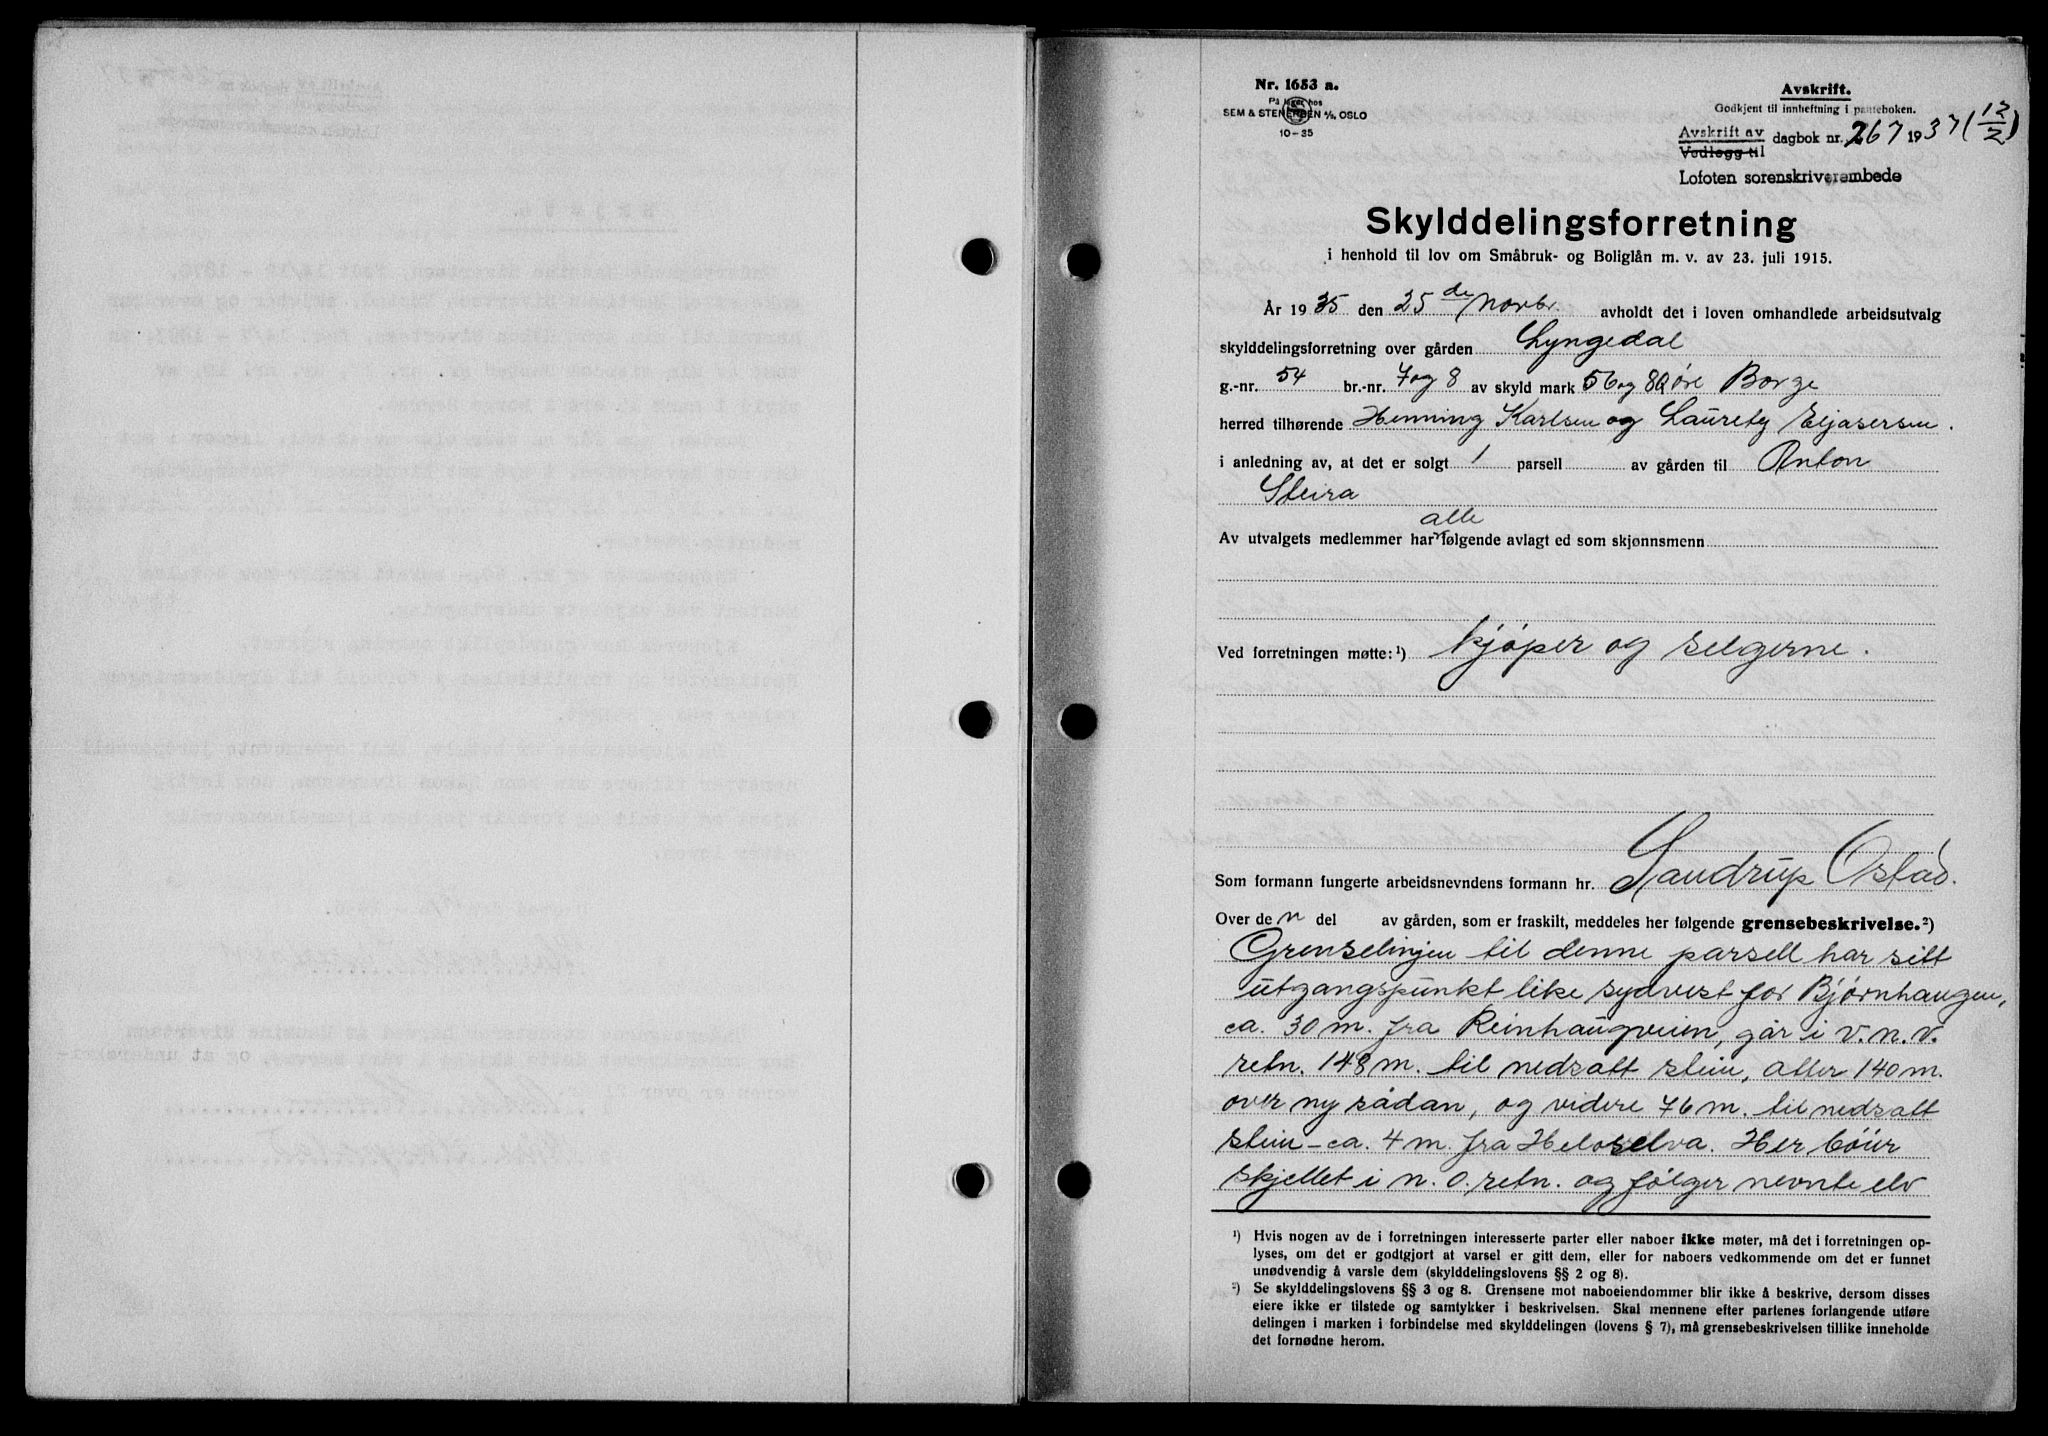 Nr. 1653 a.
På lager hos
SEM & STENERSEN A/S, OSLO
10-35
Avskrift.
Godkjent til innheftning i panteboken.
Avskrift av
Vedlegg til
dagbok nr. 267 1937 (12/2)
Lofoten sorenskriverembede
Skylddelingsforretning
i henhold til lov om Småbruk- og Boliglån m. v. av 23. juli 1915.
År 1935 den 25de Novbr. avholdt det i loven omhandlede arbeidsutvalg
skylddelingsforretning over gården Lyngedal
g.-nr. 54 br.-nr. 7 og 8 av skyld mark 56 og 80 øre Borge
herred tilhørende Henning Karlsen og Lauretz Eljasersen.
i anledning av, at det er solgt 1 parsell av gården til Anton
Steira
alle
Av utvalgets medlemmer har følgende avlagt ed som skjønnsmenn
Ved forretningen møtte: ¹) kjøper og selgerne.
Som formann fungerte arbeidsnevndens formann hr. Saudrup Ostad.
Over den del av gården, som er fraskilt, meddeles her følgende grensebeskrivelse.²)
Grenselinjen til denne parsell har sitt
utgangspunkt like sydvest for Bjørnhaugen,
ca. 30 m. fra Reinhaugveien, går i v.n.v.
retn. 148 m. til nedsatt stein, atter 140 m.
over ny sådan, og videre 76 m. til nedsatt
stein - ca. 4 m. fra Heloselva. Her bøier
skjellet i n. o. retn. og følger nevnte elv
¹) Hvis nogen av de i forretningen interesserte parter eller naboer ikke møter, må det i forretningen op-
lyses, om det er godtgjort at varsel er gitt dem, eller for naboers vedkommende om det er funnet
unødvendig å varsle dem (skylddelingslovens §§ 2 og 8).
²) Se skylddelingslovens §§ 3 og 8. Grensene mot naboeiendommer blir ikke å beskrive, dersom disses
eiere ikke er tilstede og samtykker i beskrivelsen. Skal mennene efter partenes forlangende utføre
delingen i marken i forbindelse med skylddelingen (lovens § 7), må grensebeskrivelsen tillike inneholde
det fornødne herom.